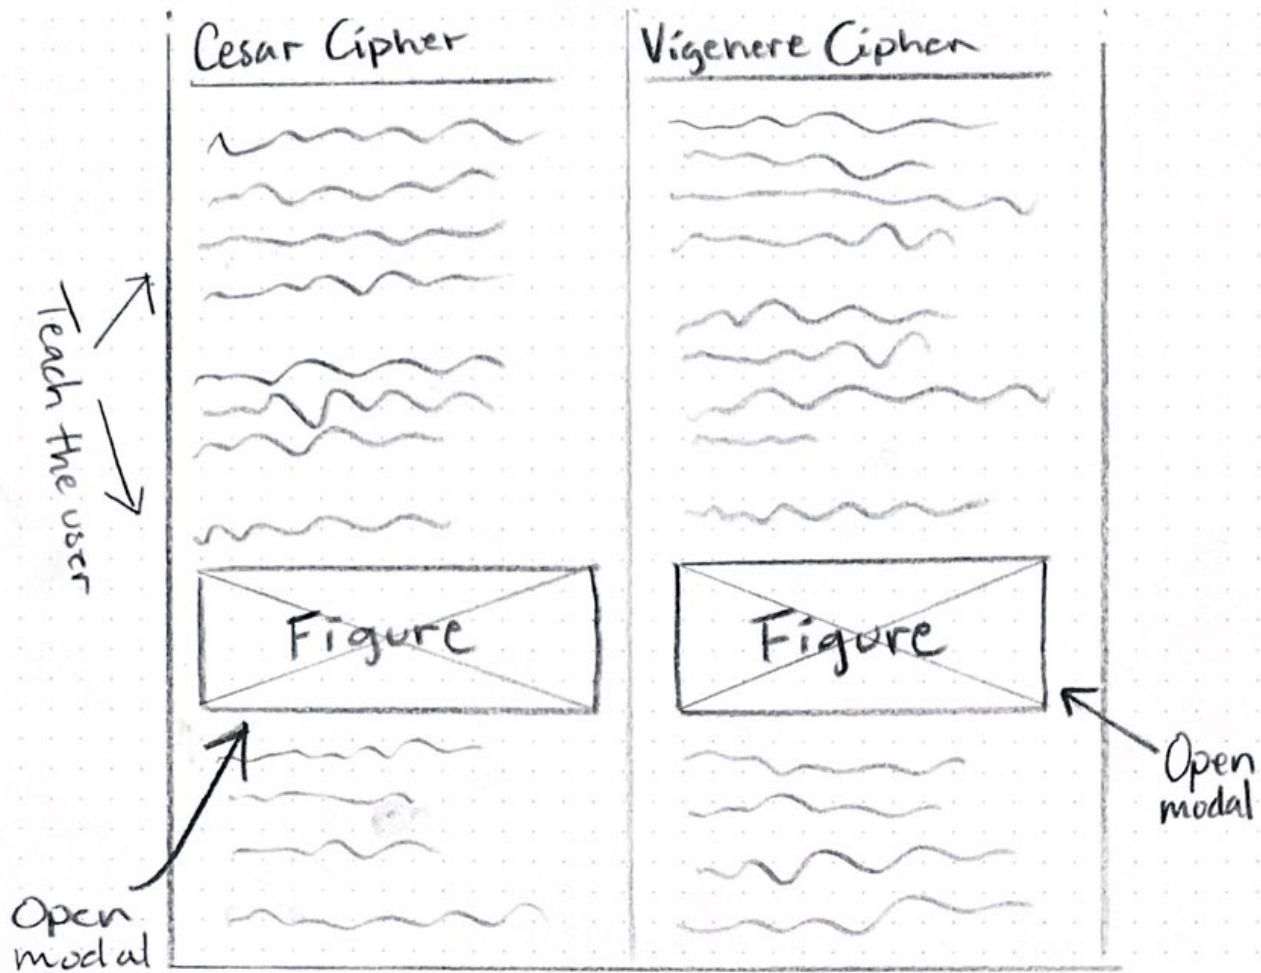 Cesar Cipher
Vigenere Cipher
Teach the user
Figure
Figure
Open
modal
Open
modal